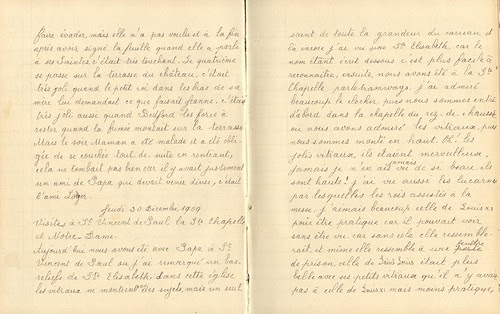 faire évader, mais elle n'a pas voulu et à la fin
après avoir signé la feuille quand elle a parlé
à ses Saintes, c'était très touchant. Le quatrième
se passe sur la terrasse du château, c'était
très joli quand le petit roi dans les bras de sa
mère lui demandait ce que faisait Jeanne, c'était
très joli aussi quand Bedford les force à
rester quand la fumée montait sur la terrasse.
Mais le soir Maman a été malade et a été obli-
gée de se coucher tout de suite en rentrant,
cela ne tombait pas bien car il y avait justement
un ami de Papa qui devait venir dîner, c'était
l'ami
Jeudi 30 Décembre 1909
Visites à St Vincent de Paul la Ste Chapelle
et Notre-Dame.
Aujourd'hui nous avons été avec Papa à St
Vincent de Paul où j'ai remarqué un bas-
relief de Ste Elisabeth, dans cette église
les vitraux ne montrent des sujets, mais un seul
saint de toute la grandeur du carreau et
là encore j'ai vu une Ste Elisabeth, car le
nom étant écrit dessous c'est plus facile à
reconnaître, ensuite nous avons été à la Ste
Chapelle, par le tramways j'ai admiré
beaucoup le clocher, puis nous sommes entrés
d'abord dans la chapelle du rez-de-chaussée
où nous avons admiré les vitraux, puis
nous sommes monté en haut. Oh! les
jolis vitraux, ils étaient merveilleux,
jamais je n'en ais vu de si beaux, ils
sont hauts! j'ai vu aussi la lucarne
par lesquelles les rois assistés à la
messe, j'remais beaucoup celle de Louis XI
pour être pratique car il pouvait voir
sans être vu car sans cela elle ressemble-
rait, et même elle ressemble à une
de prison, celle de Saint Louis était plus
belle avec ses petits vitraux qu'il n'y avait
pas à celle de Louis XI mais moins pratique,